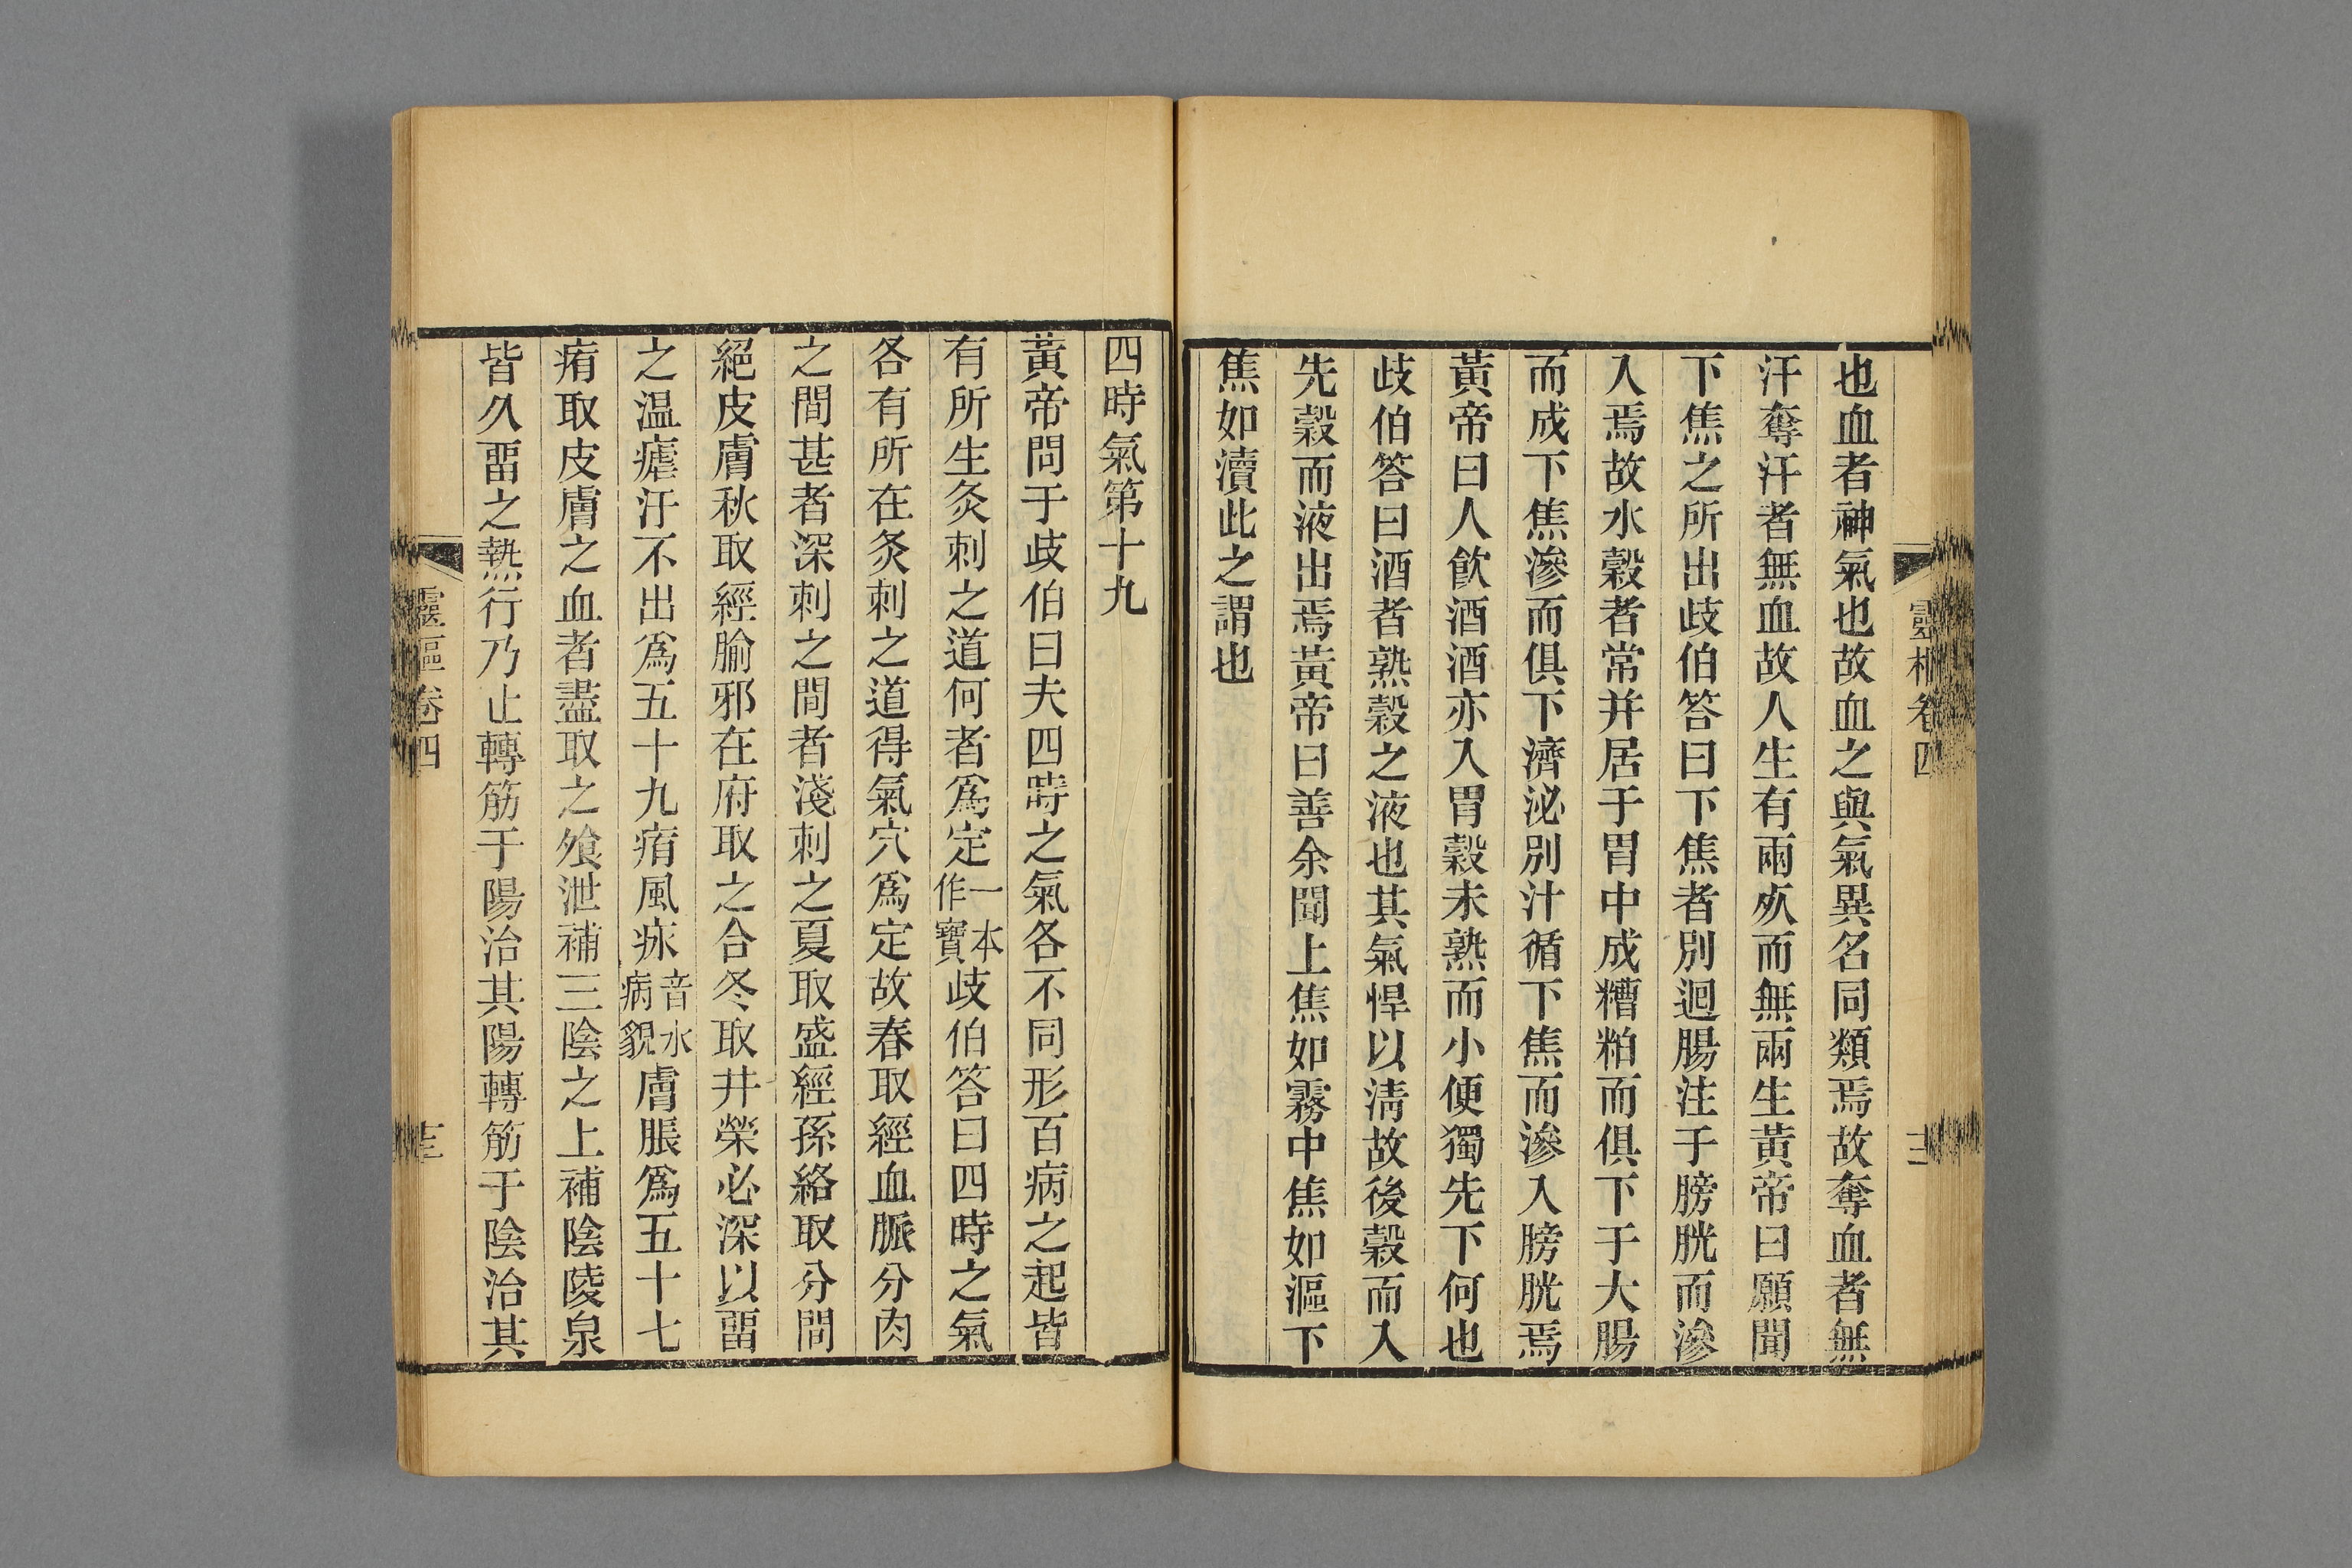 也血者神氣也故血之與氣異名同類焉故奪血者無
汗奪汗者無血故人生有兩㱥而無兩生黃帝曰願聞
下焦之所出歧伯答曰下焦者別迴腸注于膀胱而滲
入焉故水穀者常并居于胃中成糟粕而俱下于大腸
而成下焦滲而俱下濟泌別汁循下焦而滲入膀胱焉
黃帝曰人飲酒酒亦入胃穀未熟而小便獨先下何也
歧伯答曰酒者熟穀之液也其氣悍以淸故後穀而入
先穀而液出焉黃帝曰善余聞上焦如霧中焦如漚下
焦如瀆此之謂也
四時氣第十九
黃帝問于歧伯曰夫四時之氣各不同形百病之起皆
有所生灸刺之道何者爲定一本作寶歧伯答曰四時之氣
各有所在灸刺之道得氣穴爲定故春取經血脈分肉
之間甚者深刺之間者淺刺之夏取盛經孫絡取分間
絕皮膚秋取經腧邪在府取之合冬取井榮必深以畱
之温瘧汗不出爲五十九痏風㽷音水病貌膚脹爲五十七
痏取皮膚之血者盡取之飱泄補三陰之上補陰陵泉
皆久畱之熱行乃止轉筋于陽治其陽轉筋于陰治其
靈樞卷四